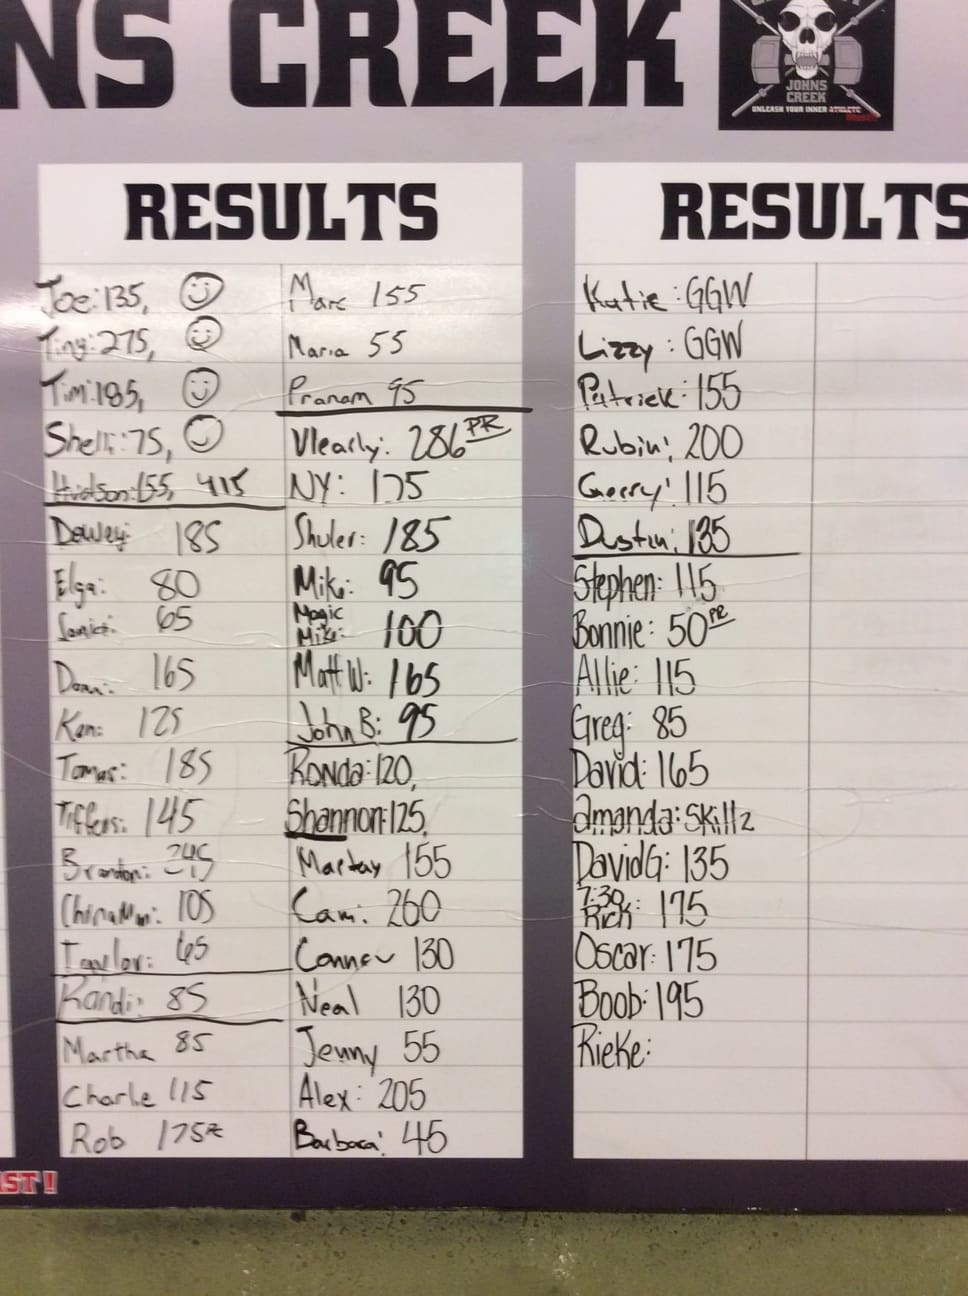 NS CREEK
JOHNS
CREEK
UNLEASH YOUR INNER ATHLETE
RESULTS
Joe: 135,
Tiny: 275,
Tim: 185,
Shelli: 75,
Hudson: 155, 415
Dewey: 185
Elga: 80
65
165
Ken: 125
185
Tiffers: 145
Brandon: 245
105
Taylor: 65
Randi: 85
Martha 85
Charle 115
Rob 175
Marc 155
Maria 55
Pranam 95
Vlearly: 286 PR
NY: 175
Shuler: 185
Mike: 95
Magic
Mike: 100
Matt W: 165
John B: 95
Ronda: 120,
Shannon: 125,
155
Cam: 260
Conner 130
Neal 130
Jenny 55
Alex: 205
Barbara: 45
RESULTS
Katie: GGW
Lizzy: GGW
Patrick: 155
Rubin: 200
Gerry: 115
Dustin: 135
Stephen: 115
Bonnie: 50 PR
Allie: 115
Greg: 85
David: 165
amanda: Skillz
David G: 135
7:30
Rich: 175
Oscar: 175
Boob: 195
Rieke:
AST!